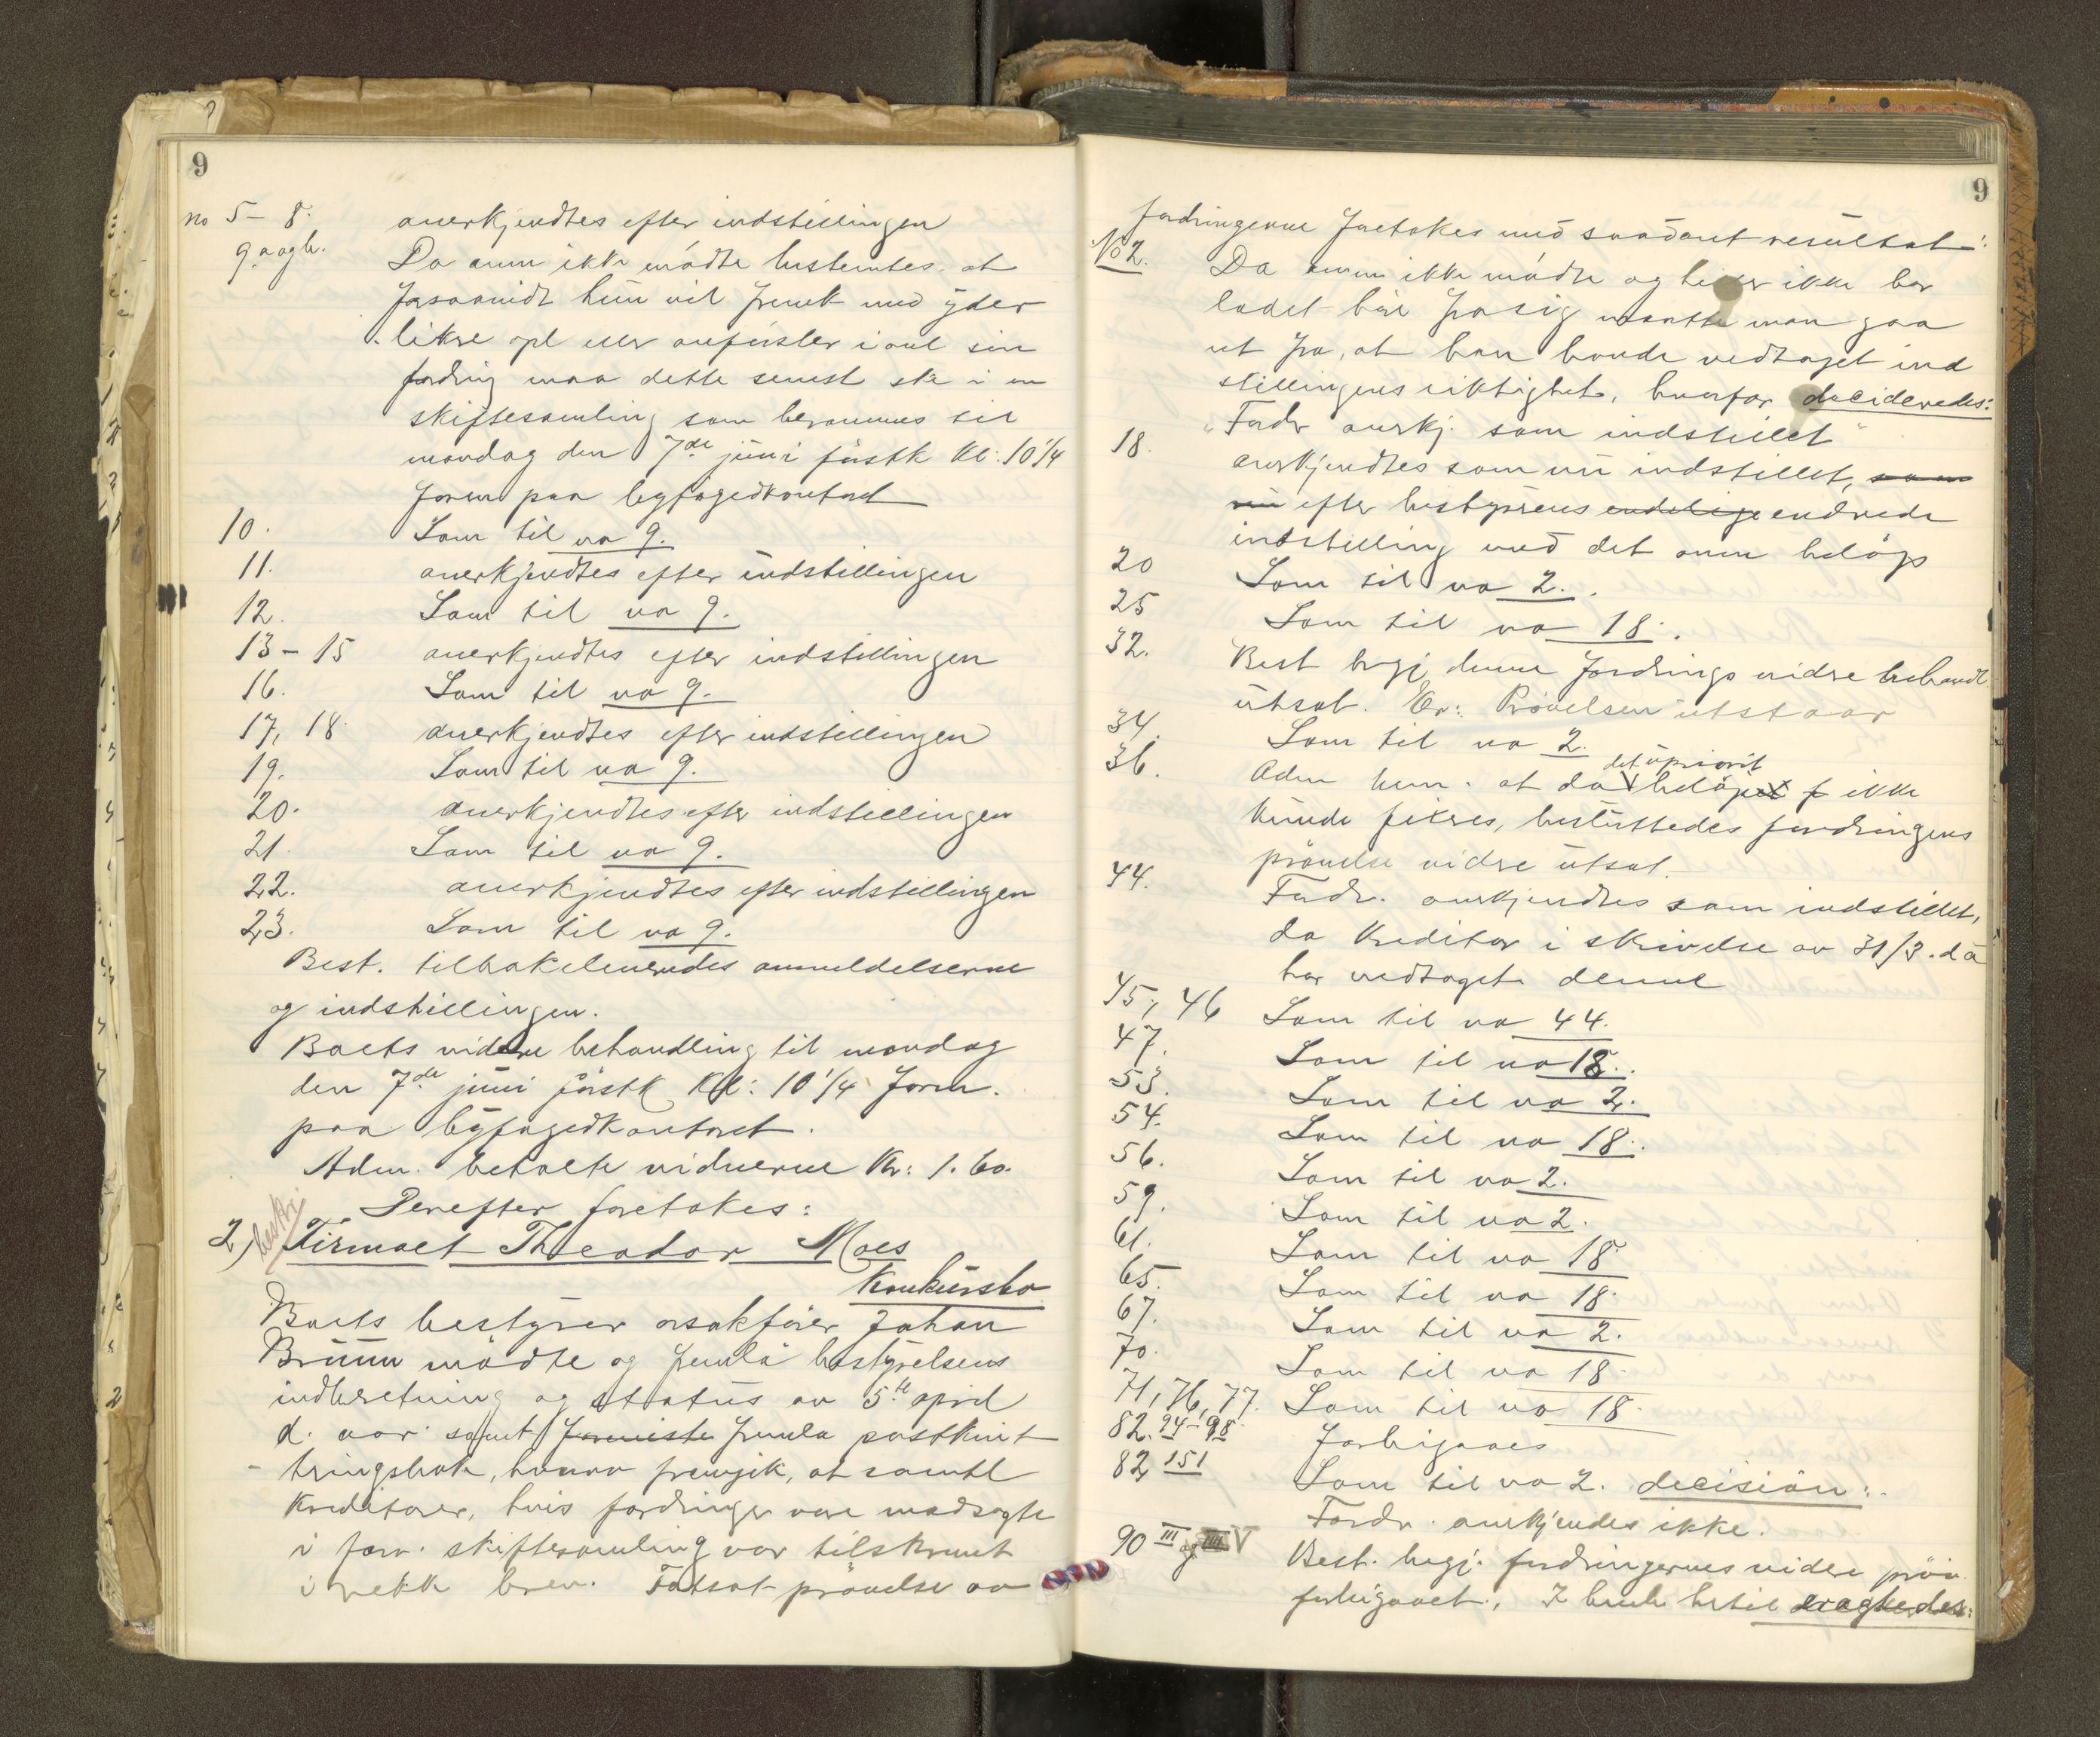 9
no 5 – 8. anerkjendtes efter indstillingen
9 a og b. Da anm ikke mødte bestemtes at
forsaavidt hun vil fremk med yder
likere opl eller anførsler i anl sin
fordring maa dette senest ske i en
skiftesamling som berammes til
mandag den 7de juni førstk kl: 10 1/4
form paa byfogedkontoret
10. Som til no 9.
11. anerkjendtes efter indstillingen
12. Som til no 9.
13 – 15 anerkjendtes efter indstillingen
16. Som til no 9.
17, 18 anerkjendtes efter indstillingen
19. Som til no 9.
20. anerkjendtes efter indstillingen
21. Som til no 9.
22. anerkjendtes efter indstillingen
23. Som til no 9.
Best. tilbakeleveredes anmeldelserne
og indstillingen.
Boets videre behandling til mandag
den 7de juni førstk kl: 10 1/4 form.
paa byfogedkontoret.
Adm. betalte vidnerne Kr: 1.60.
Derefter foretokes:
2) Firmaet Theodor Moes
Konkursbo
Boets bestyrer osakfører Johan
Bruun mødte og fremla bestyrelsens
indberetning og status av 5te april
d. aar samt foreviste fremla postkvit
teringsbok, hvorav fremgik, at samtl
kreditorer, hvis fordringer var modsagte
i forr. skiftesamling var tilskrevet
i rekk brev. Fatsat prøvelse av
9
fordringerne foretokes med saadant resultat:
No 2. Da anm ikke mødte og heller ikke har
ladet høre fra sig maatte man gaa
ut fra, at han havde vedtaget ind
stillingens riktighet, hvorfor decideredes:
"Fordr anerkj. som indstillet"
18. anerkjendtes som nu indstillet, som
nu efter bestyrerens endelige endrede
indstilling med det anm beløp
20 Som til no 2.
25 Som til no 18.
32. Best begj denne fordrings vidre behandl
utsat. Er: Prøvelsen utstaar
34. Som til no 2.
det upriorit
36. Adm bem. at da beløpet f ikke
kunde fikses, besluttedes fordringens
prøvelse vidre utsat.
44. Fordr. anerkjendtes som indstillet,
da kreditor i skrivelse av 31/3. d a
har vedtaget denne
45, 46 Som til no 44.
47. Som til no 18.
53. Som til no 2.
54. Som til no 18.
56. Som til no 2.
59. Som til no 2.
61. Som til no 18
65. Som til no 18.
67. Som til no 2.
70. Som til no 18.
71, 76, 77. Som til no 18.
82. 94–98 Forbigaaes
82, 151 Som til no 2. decision:
Fordr. anerkjendes ikke.
90 III og IIII V Best. begj. fordringernes videre prøv
forbigaaet. I henh hertil eragtedes: